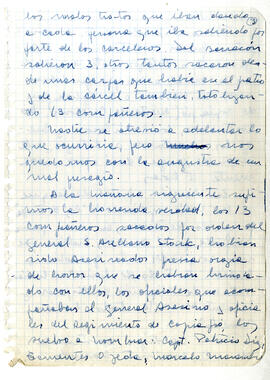 los malos tratos que iban dando
a cada persona que iba saliendo por
parte de los carceleros. Del
salieron 3, otros tantos sacaron de
de unas carpas que había en el patio
de la cárcel también, totalizan
do 13 compañeros.
Nadie se atrevió a adelantar lo
que ocurriría, pero nos
quedamos con la angustia de un
mal presagio.
A la mañana siguiente supi
mos la horrenda verdad, los 13
compañeros sacados por orden del
General S. Arellano Stark, habían
sido Asesinados previa orgía
de horror que se habían brinda
do con ellos, los oficiales que acom
pañaban al General Asesino y oficia
les del regimiento de Copiapó, los
vuelvo a nombrar: Capt. Patricio Díaz
Marcelo